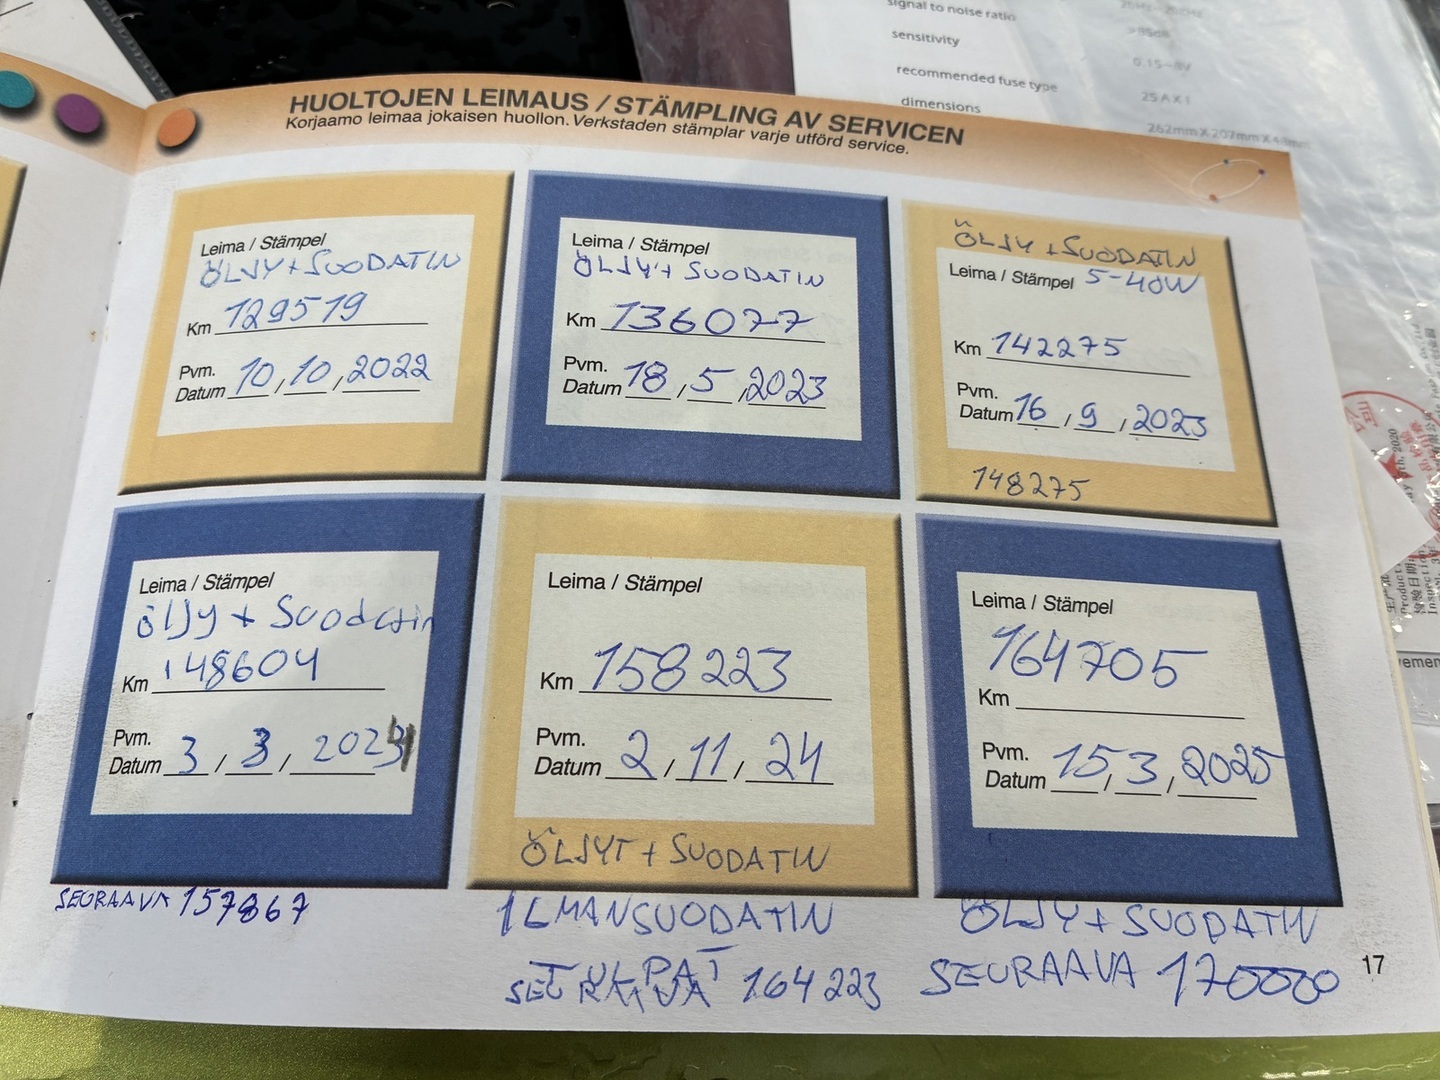 signal to noise ratio
sensitivity
>85dB
recommended fuse type
0.15~8V
dimensions
25 A X 1
HUOLTOJEN LEIMAUS / STÄMPLING AV SERVICEN
Korjaamo leimaa jokaisen huollon. Verkstaden stämplar varje utförd service.
Leima / Stämpel
ÖLJY + SUODATIN
Km 129519
Pvm.
Datum 10, 10, 2022
Leima / Stämpel
ÖLJY + SUODATIN
Km 136077
Pvm.
Datum 18, 5, 2023
ÖLJY + SUODATIN
Leima / Stämpel 5-40W
Km 142275
Pvm.
Datum 16, 9, 2023
148275
Leima / Stämpel
öljy + Suodatin
Km 148604
Pvm.
Datum 3 / 3 / 2024
SEURAAVA 157867
Leima / Stämpel
Km 158223
Pvm.
Datum 2 / 11 / 24
ÖLJYT + SUODATIN
ILMANSUODATIN
TULPAT
SEURAAVA 164223
Leima / Stämpel
164705
Km
Pvm.
Datum 15, 3, 2025
ÖLJY + SUODATIN
SEURAAVA 170000
17